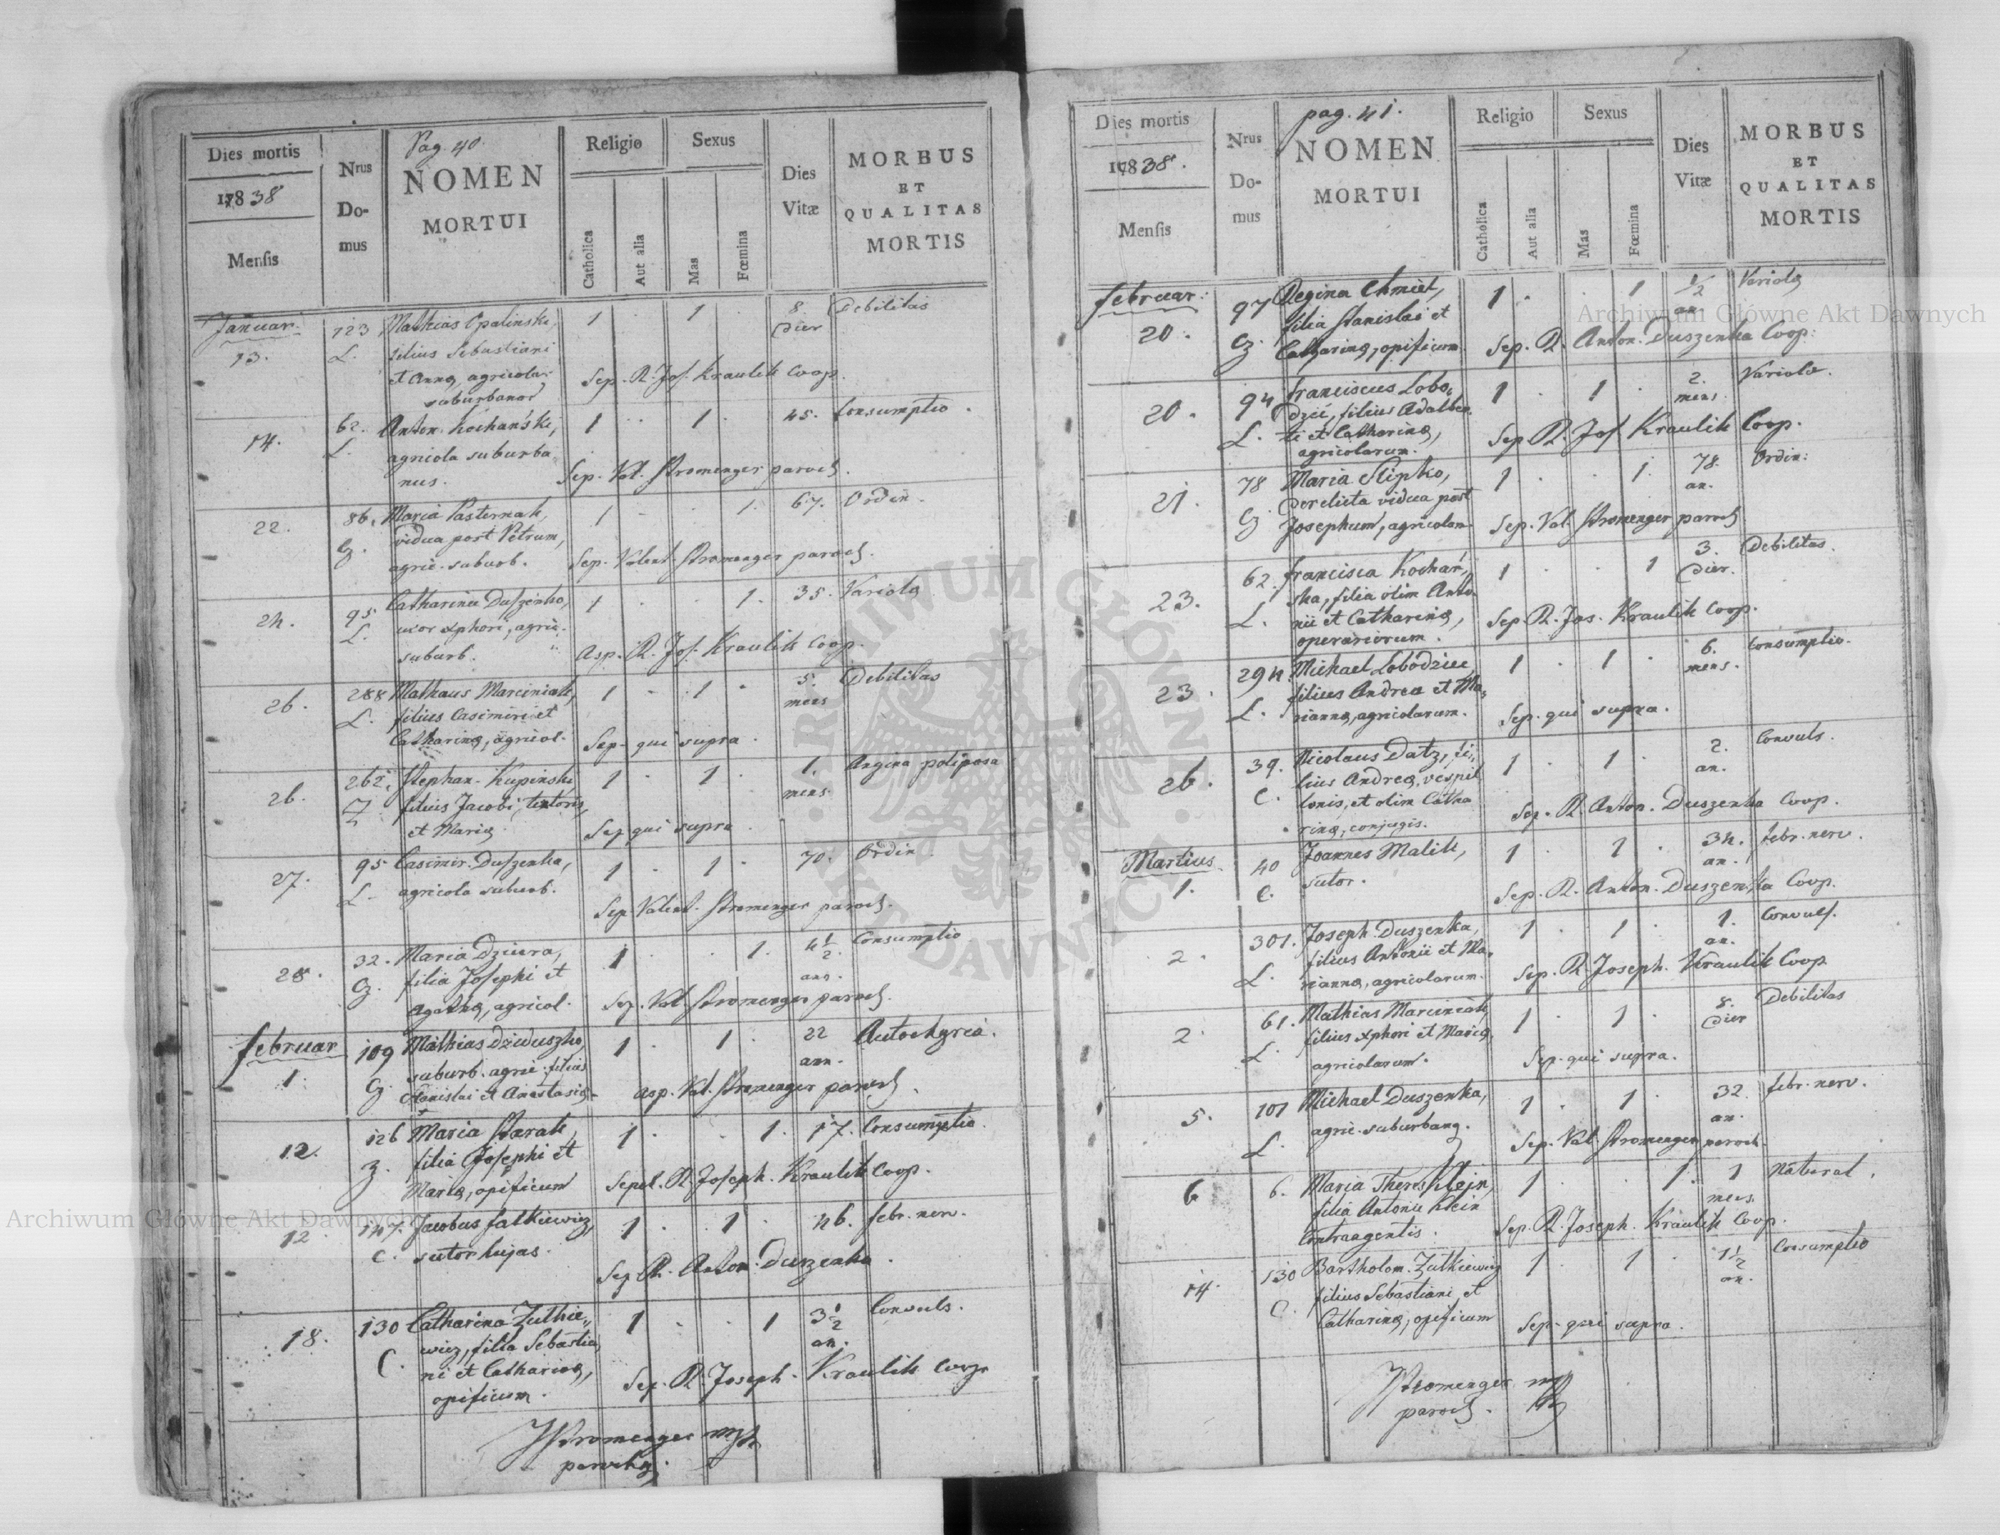 Pag. 40.
Dies mortis
1838
Mensis
Nrus
Do-
mus
NOMEN
MORTUI
Religio
Catholica
Aut alia
Sexus
Mas
Fœmina
Dies
Vitæ
MORBUS
ET
QUALITAS
MORTIS
Januar.
13.
123
L.
Mathias Opalinski,
filius Sebastiani
et Annæ, agricolar.
suburbanor
1 · 1 ·
8.
Dier
Debilitas
Sep. R. Jos. Kraulik Coop.
14.
62.
L.
Anton. Kochański,
agricola suburba
nus.
1 · 1 ·
45.
Consumptio.
Sep. Val. Stromenger paroch.
22.
86.
G.
Maria Pasternak,
vidua post Petrum,
agric. suburb.
1 · · 1.
67.
Ordin.
Sep. Valent. Stromenger paroch.
24.
95
L.
Catharina Duszenko,
uxor Xphori, agric.
suburb.
1 · · 1.
35.
Variola
Asp. R. Jos. Kraulik Coop.
26.
288
L.
Mathæus Marciniak,
filius Casimiri et
Catharinæ, agricol.
1 · 1 ·
5.
mens
Debilitas
Sep. qui supra.
26.
262.
Z.
Stephan. Kupinski
filius Jacobi, textoris,
et Mariæ.
1 · 1 ·
1.
mens.
Angina poliposa
Sep. qui supra.
27.
95
L.
Casimir. Duszenka,
agricola suburb.
1 · 1 ·
70.
Ordin.
Sep. Valent. Stromenger paroch.
28.
32.
G.
Maria Dziura,
filia Josephi et
Agathæ, agricol.
1 · · 1.
4 1/2
ann.
Consumptio
Sep. Val. Stromenger paroch.
Februar
1.
109
G.
Mathias Dziduszko,
suburb. agric. filius
Stanislai et Anastasiæ.
1 · 1 ·
22
ann.
Autochyria.
asp. Val. Stromenger paroch.
12.
126
Z.
Maria Starak,
filia Josephi et
Mariæ, opificum
1 · · 1.
17.
Consumptio.
Sepel. R. Joseph. Kraulik Coop.
12.
147.
C.
Jacobus Falkiewicz,
sutor hujas.
1 · 1 ·
46.
febr. nerv.
Sep. R. Anton. Duszenka.
18.
130
C.
Catharina Zulkie-
wicz, filia Sebastia
ni et Catharinæ,
opificum.
1 · · 1
3 1/2
an.
Convuls.
Sep. R. Joseph. Kraulik Coop.
Stromenger mp
parochus.
pag. 41.
Dies mortis
1838.
Mensis
Nrus
Do-
mus
NOMEN
MORTUI
Religio
Catholica
Aut alia
Sexus
Mas
Fœmina
Dies
Vitæ
MORBUS
ET
QUALITAS
MORTIS
Februar:
20.
97
G.
Regina Chmiel,
filia Stanislai et
Catharinæ, opificum.
1 · · 1
1/2
an.
Variola
Sep. R. Anton. Duszenka Coop:
20.
94
L.
Franciscus Lobo-
dzic, filius Adalber
ti et Catharinæ,
agricolarum.
1 · 1 ·
2.
mens.
Variola.
Sep. R. Jos. Kraulik Coop.
21.
78
G.
Maria Slipko,
Derelicta vidua post
Josephum, agricolam
1 · · 1.
78.
an.
Ordin:
Sep. Val. Stromenger paroch
23.
62.
L.
Francisca Kochań-
ska, filia olim Anto-
nii et Catharinæ,
operariorum.
1 · · 1
3.
Dier.
Debilitas.
Sep. R. Jos. Kraulik Coop.
23.
294.
L.
Michael Lobodziec,
filius Andreæ et Ma-
riannæ, agricolarum.
1 · 1 ·
6.
mens.
Consumptio.
Sep. qui supra.
26.
39.
C.
Nicolaus Datz, fi-
lius Andreæ, vespil
lonis, et olim Catha
rinæ, conjugis.
1 · 1 ·
2.
an.
Convuls.
Sep. R. Anton. Duszenka Coop.
Martius
1.
40
C.
Joannes Malik,
sutor.
1 · 1 ·
34.
an.
febr. nerv.
Sep. R. Anton. Duszenka Coop.
2.
301.
L.
Joseph. Duszenka,
filius Antonii et Ma-
riannæ, agricolarum.
1 · 1 ·
1.
an.
Convuls.
Sep. R. Joseph. Kraulik Coop
2.
61.
L.
Mathias Marciniak,
filius Xphori et Mariæ,
agricolarum.
1 · 1 ·
8.
Dier
Debilitas
Sep. qui supra.
5.
101
L.
Michael Duszenka,
agric. suburbang.
1 · 1 ·
32.
an.
febr. nerv.
Sep. Val. Stromenger paroch.
6
6.
Maria Theres. Klein,
filia Antonii Klein
Contraagentis.
1 · · 1.
1
mens.
Natural.
Sep. R. Joseph. Kraulik Coop.
14.
130
C.
Bartholom. Zulkiewicz
filius Sebastiani et
Catharinæ, opificum
1 · 1 ·
1 1/2
an.
Consumptio
Sep. qui supra.
Stromenger mp
paroch.
Archiwum Główne Akt Dawnych
Archiwum Główne Akt Dawnych
ARCHIWUM GŁÓWNE AKT DAWNYCH